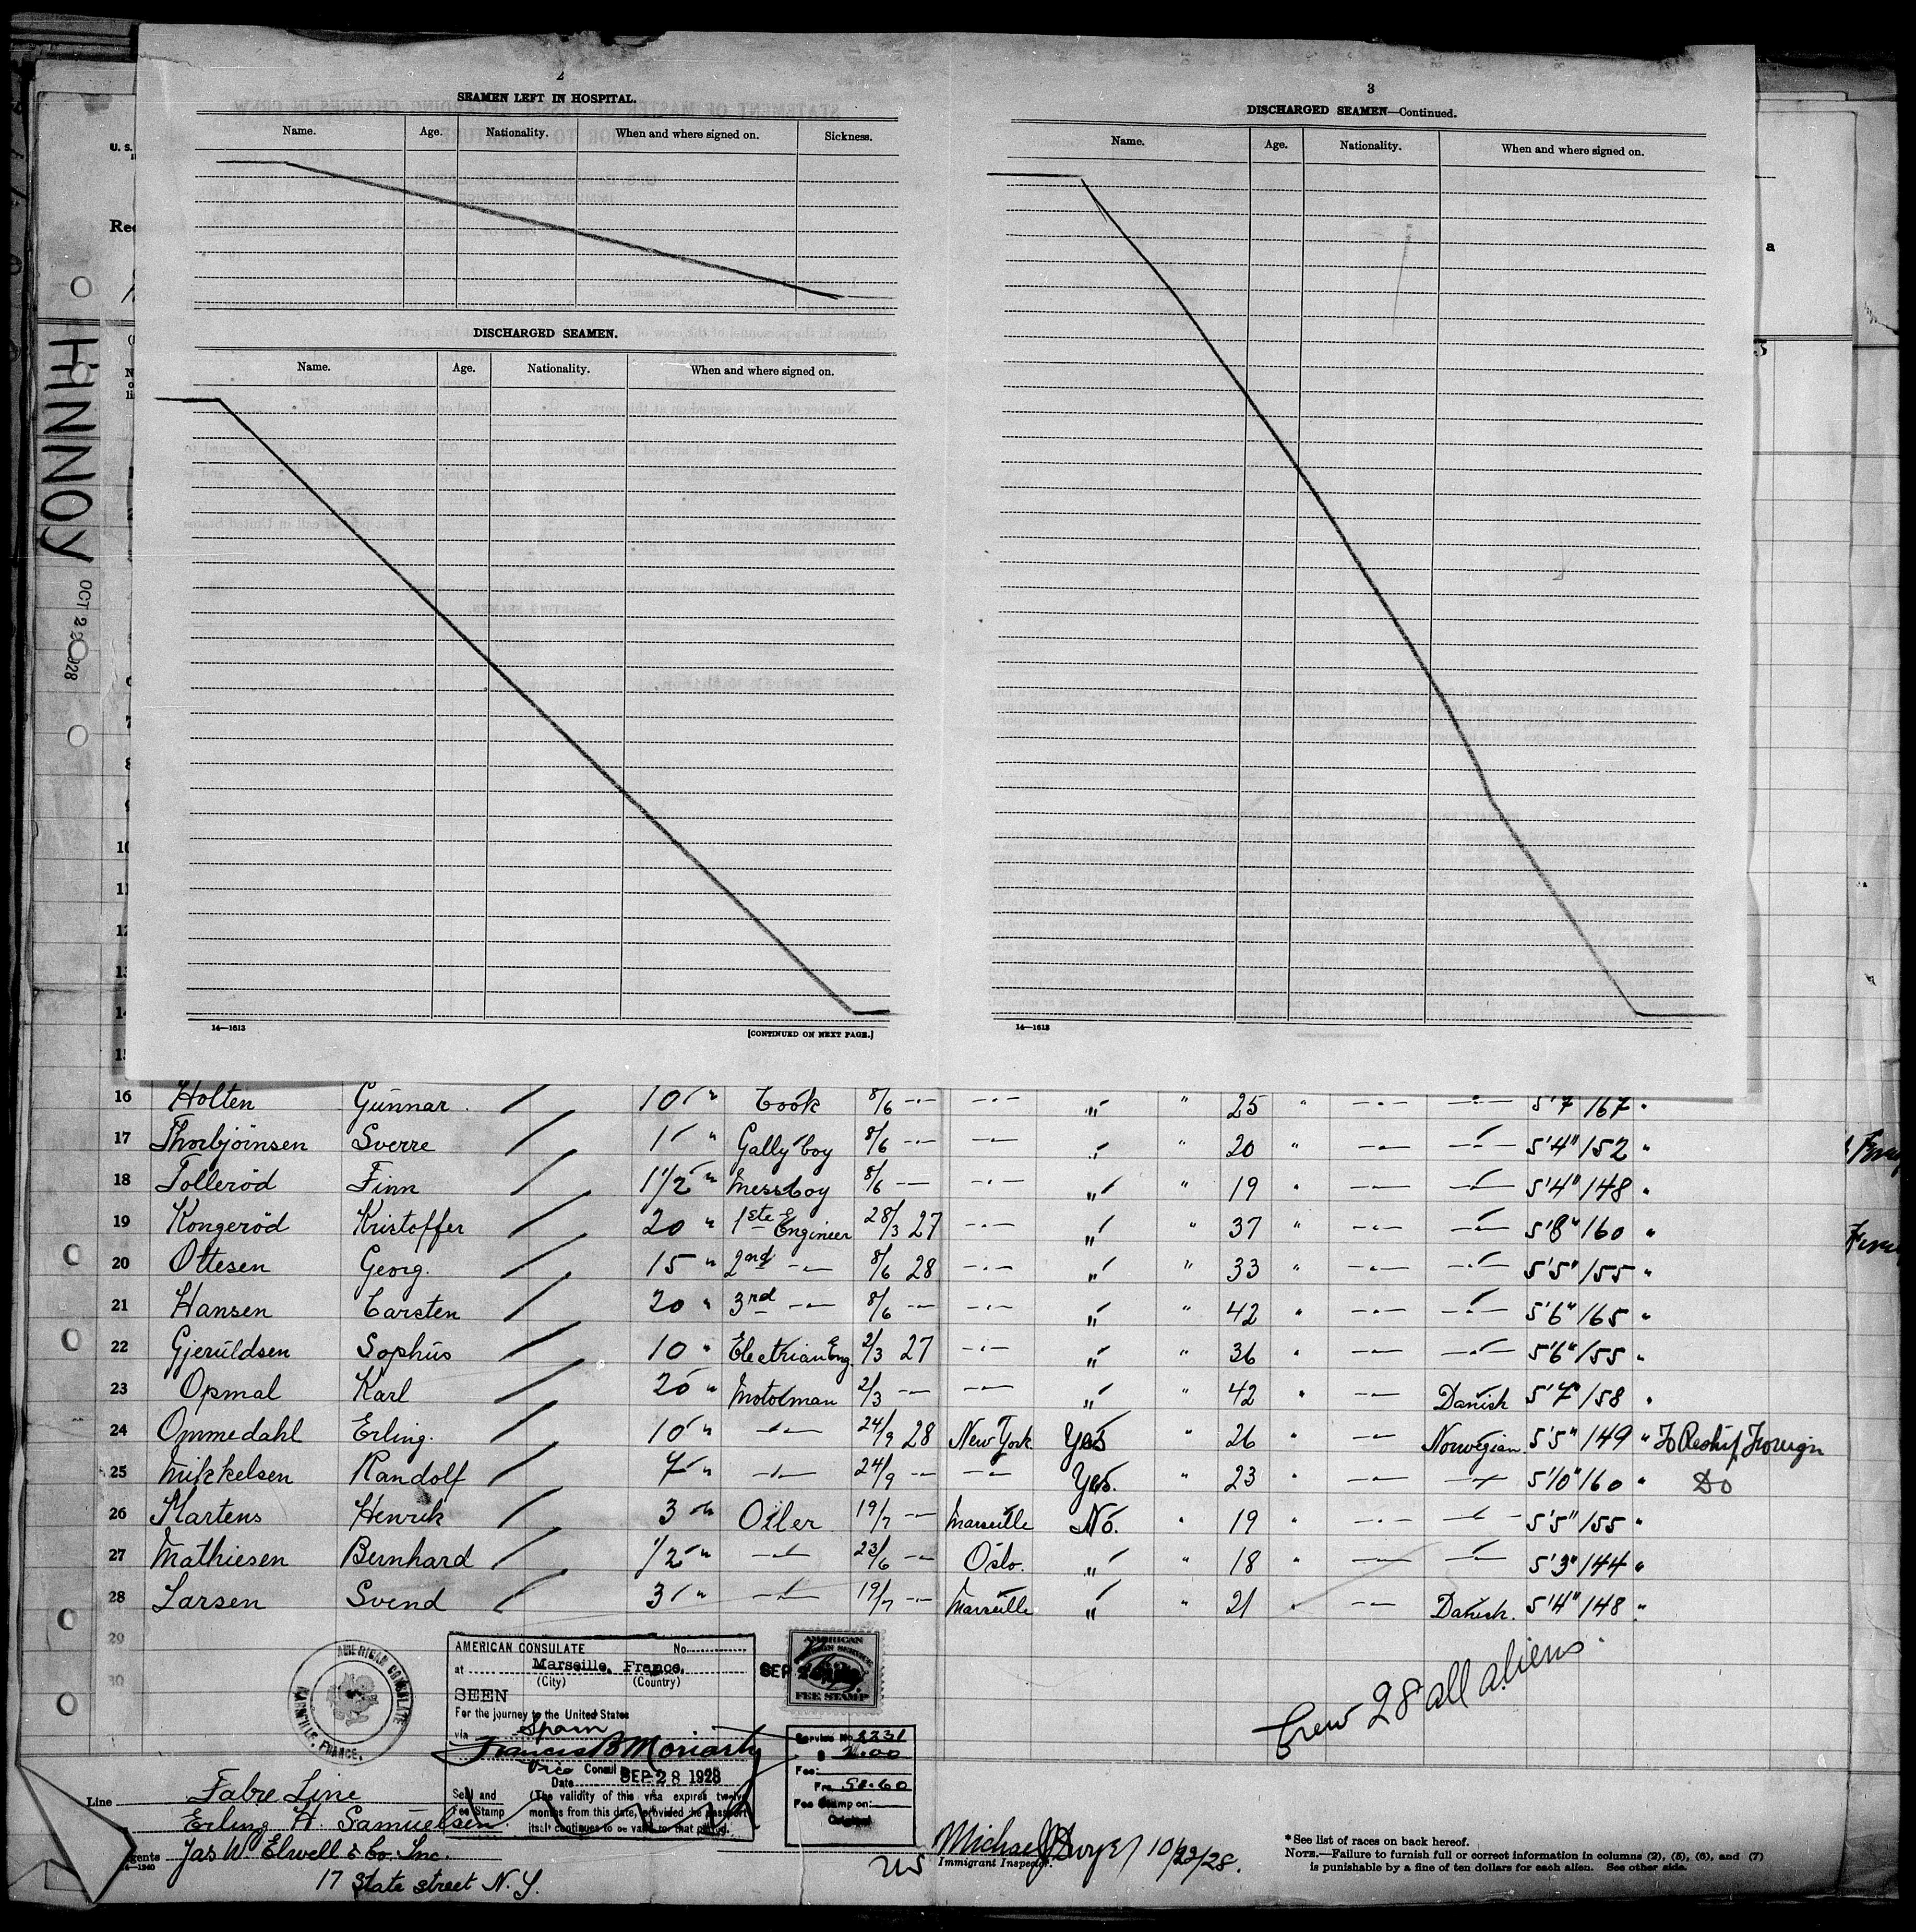 2
SEAMEN LEFT IN HOSPITAL.
Name. Age. Nationality. When and where signed on. Sickness.
DISCHARGED SEAMEN.
Name. Age. Nationality. When and where signed on.
14—1613 [CONTINUED ON NEXT PAGE.]
3
DISCHARGED SEAMEN—Continued.
Name. Age. Nationality. When and where signed on.
14—1613
U. S.
a
HINNOY
OCT 2
7
8
10
11
12
13
14
15
16 Holten Gunnar. 10 " Cook 8/6 —"— —"— " " 25 " —"— —"— 5'7 167 "
17 Thorbjöinsen Sverre 1 " Gally boy 8/6 —"— —"— " " 20 " —"— —"— 5'4" 152 "
18 Tolleröd Finn 1 1/2 " Messboy 8/6 —"— —"— " " 19 " —"— —"— 5'4" 148 "
19 Kongeröd Kristoffer 20 " 1ste Engineer 28/3 27 —"— " " 37 " —"— —"— 5'8" 160 "
20 Ottesen Georg. 15 " 2nd —"— 8/6 28 —"— " " 33 " —"— —"— 5'5" 155 "
21 Hansen Carsten 20 " 3rd —"— 8/6 —"— —"— " " 42 " —"— —"— 5'6" 165 "
22 Gjeruldsen Sophus 10 " Elecktrian Eng. 2/3 27 —"— " " 36 " —"— —"— 5'6" 155 "
23 Opmal Karl 20 " Motolman 2/3 —"— —"— " " 42 " —"— Danish 5'7" 158 "
24 Ommedahl Erling. 10 " —"— 24/9 28 New York Yes " 26 " —"— Norwegian. 5'5" 149 " To Reship Foreign
25 Mikkelsen Randolf 7 " —"— 24/9 —"— —"— Yes. " 23 " —"— —"— 5'10" 160 " Do
26 Martens Henrik 3 " Oiler 19/7 —"— Marseille No. " 19 " —"— —"— 5'5" 155 "
27 Mathiesen Bernhard 1/2 " —"— 23/6 —"— Oslo. " " 18 " —"— —"— 5'3" 144 "
28 Larsen Svend 3 " —"— 19/7 —"— Marseille " " 21 " —"— Danish. 5'4" 148 "
29
30
Crew 28 all aliens
AMERICAN CONSULATE
MARSEILLE, FRANCE.
AMERICAN CONSULATE No.
at Marseille, France.
(City) (Country)
SEEN
For the journey to the United States
via Spain
Francis B Moriarty
Vice Consul
Date SEP 28 1928
Seal and Fee Stamp
(The validity of this visa expires twelve
months from this date, provided the passport
itself continues to be valid for that period.
SEP
AMERICAN
FEE STAMP
Service No. 2231
$
Fee:
Frs
Fee Stamp on:
Original
Line Fabre Line
Erling H Samuelsen
Agents Jas W Elwell & Co. Inc.
17 State street N.Y.
Michael J Dwyer 10/22/28.
Immigrant Inspector.
* See list of races on back hereof.
NOTE.—Failure to furnish full or correct information in columns (2), (5), (6), and (7)
is punishable by a fine of ten dollars for each alien. See other side.